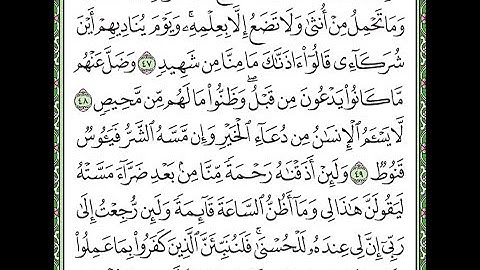 وَمَا تَحْمِلُ مِنْ أُنثَىٰ وَلَا تَضَعُ إِلَّا بِعِلْمِهِۦ ۚ وَيَوْمَ يُنَادِيهِمْ أَيْنَ
شُرَكَآءِى قَالُوٓا۟ ءَاذَنَّـٰكَ مَا مِنَّا مِن شَهِيدٍ ٤٧ وَضَلَّ عَنْهُم
مَّا كَانُوا۟ يَدْعُونَ مِن قَبْلُ ۖ وَظَنُّوا۟ مَا لَهُم مِّن مَّحِيصٍ ٤٨
لَّا يَسْـَٔمُ ٱلْإِنسَـٰنُ مِن دُعَآءِ ٱلْخَيْرِ وَإِن مَّسَّهُ ٱلشَّرُّ فَيَـُٔوسٌ
قَنُوطٌ ٤٩ وَلَئِنْ أَذَقْنَـٰهُ رَحْمَةً مِّنَّا مِنۢ بَعْدِ ضَرَّآءَ مَسَّتْهُ
لَيَقُولَنَّ هَـٰذَا لِى وَمَآ أَظُنُّ ٱلسَّاعَةَ قَآئِمَةً وَلَئِن رُّجِعْتُ إِلَىٰ
رَبِّىٓ إِنَّ لِى عِندَهُۥ لَلْحُسْنَىٰ ۚ فَلَنُنَبِّئَنَّ ٱلَّذِينَ كَفَرُوا۟ بِمَا عَمِلُوا۟